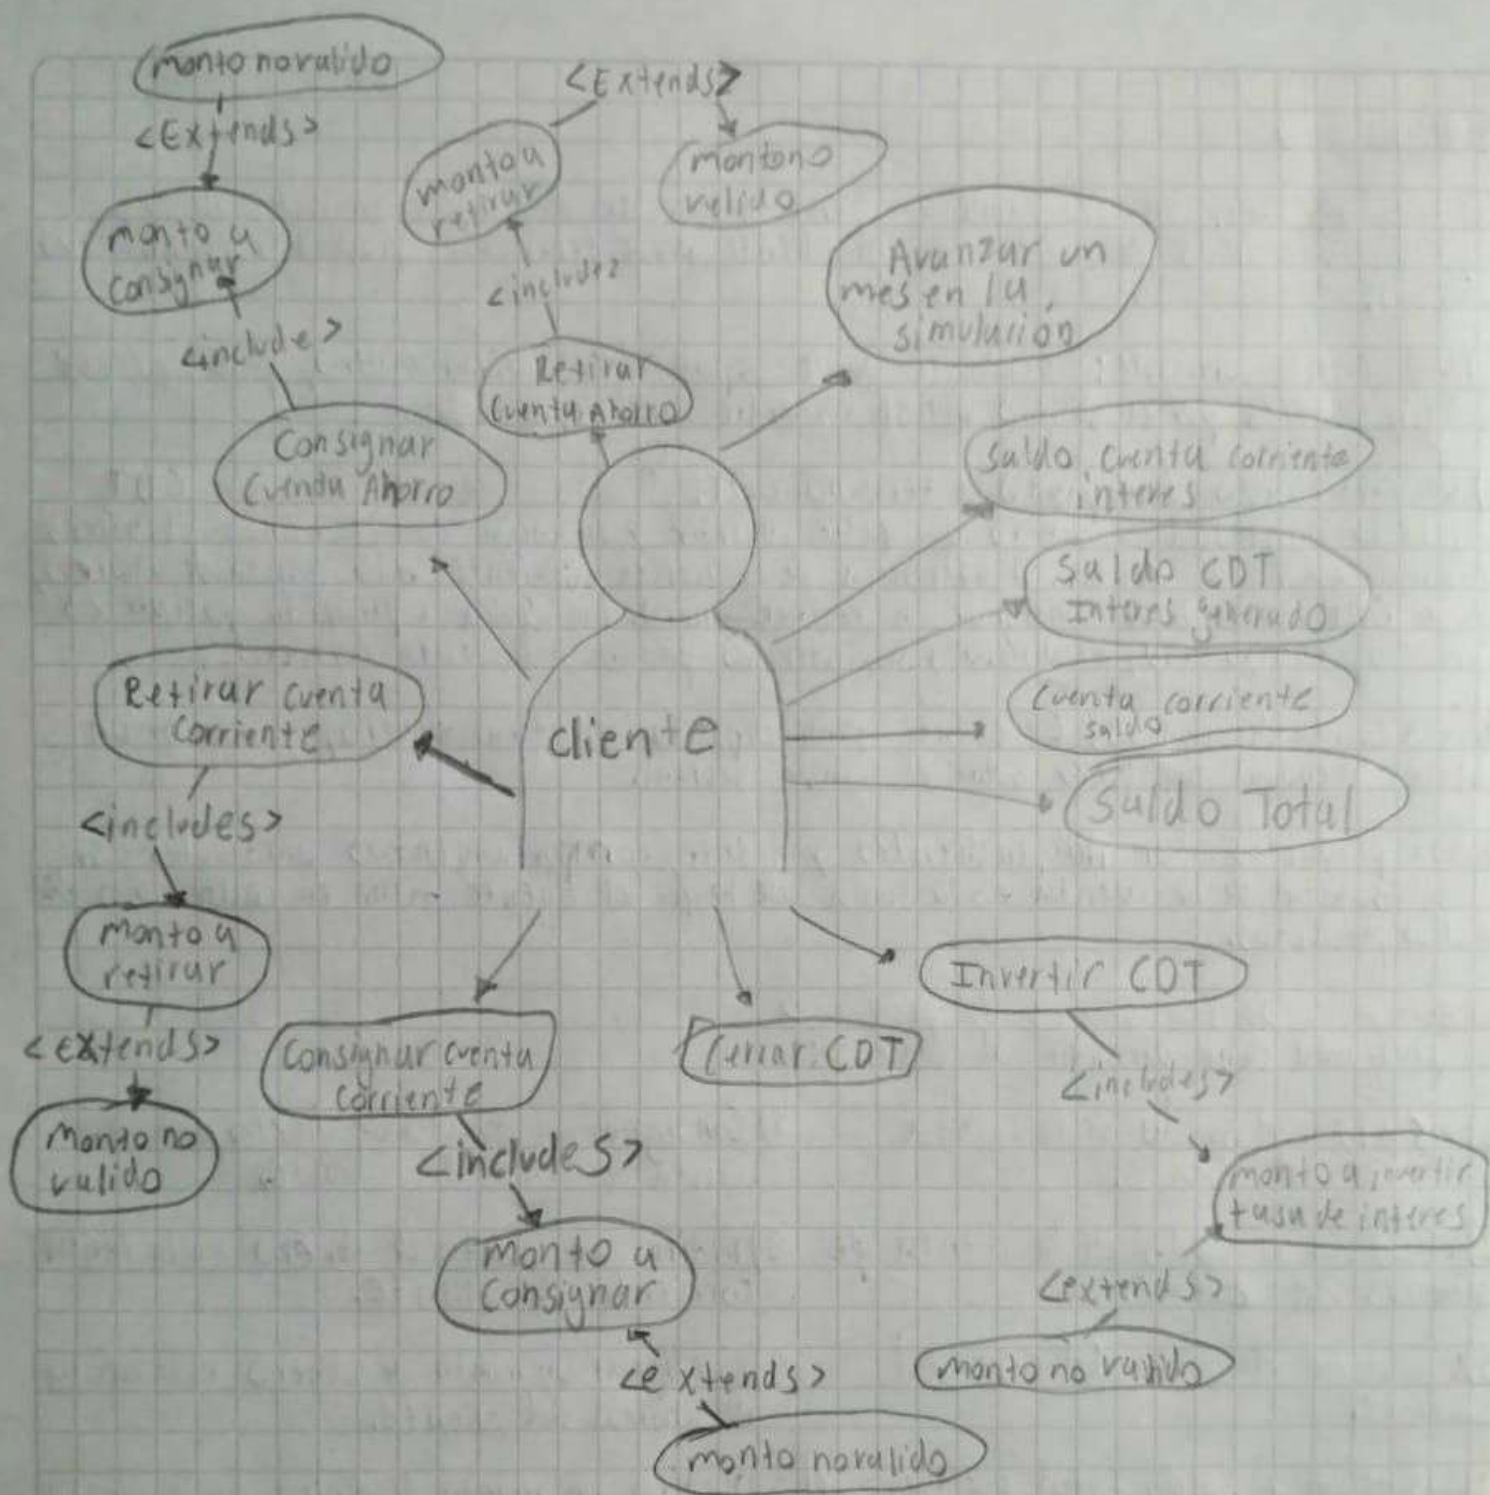 monto no valido
<Extends>
monto a
consignar
<include>
Consignar
Cuenta Ahorro
<Extends>
monto a
retirar
monto no
valido
<include>
Retirar
Cuenta Ahorro
Avanzar un
mes en la
simulación
Saldo cuenta corriente
interes
Saldo CDT
Interes generado
Cuenta corriente
saldo
Saldo Total
cliente
Retirar cuenta
Corriente
<includes>
monto a
retirar
<extends>
Monto no
valido
Consignar cuenta
Corriente
<includes>
monto a
Consignar
<extends>
monto no valido
Cerrar CDT
Invertir CDT
<includes>
monto a invertir
tasa de interes
<extends>
monto no valido